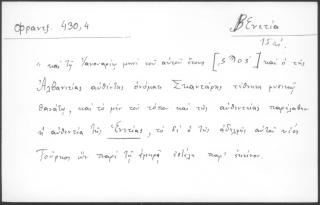 Φραντζ. 430,4
Βενετία
15 αἰ.
" καὶ τῇ Ἰανουαρίῳ μηνὶ τοῦ αὐτοῦ ἔτους [ ] καὶ ὁ τῆς
Ἀλβανιτίας αὐθέντης ὀνόματι Σκαντάρης τέθνηκε φυσικῷ
θανάτῳ, καὶ τὸ μὲν τὸν τόπον καὶ τῆς αὐθεντίας παρέλαβεν
ἡ αὐθεντία τῆς Βενετίας, τὸ δὲ ὁ τῆς ἀδελφῆς αὐτοῦ υἱὸς
Τοῦρκος ὢν παρὰ τῇ ἀμηρᾷ ἐστάλη παρ' ἐκείνου.